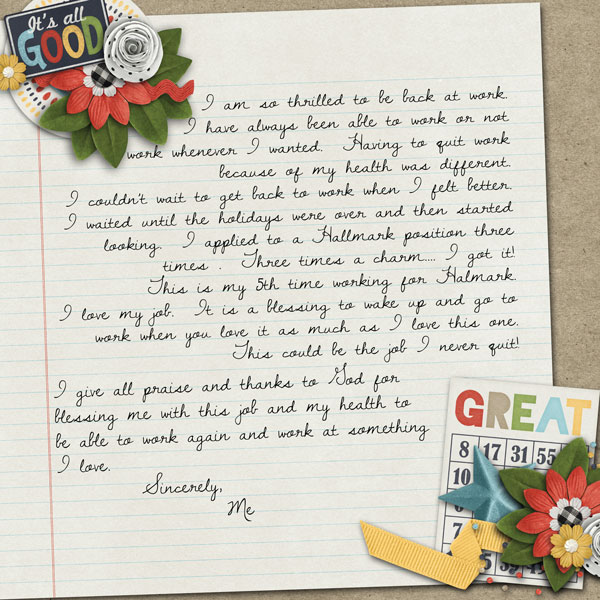 It's all
GOOD
I am so thrilled to be back at work.
I have always been able to work or not
work whenever I wanted. Having to quit work
because of my health was different.
I couldn't wait to get back to work when I felt better.
I waited until the holidays were over and then started
looking. I applied to a Hallmark position three
times . Three times a charm.... I got it!
This is my 5th time working for Halmark.
I love my job. It is a blessing to wake up and go to
work when you love it as much as I love this one.
This could be the job I never quit!
I give all praise and thanks to God for
blessing me with this job and my health to
be able to work again and work at something
I love.
Sincerely,
Me
GREAT
8 17 31 55
10
6
7
5 39 49